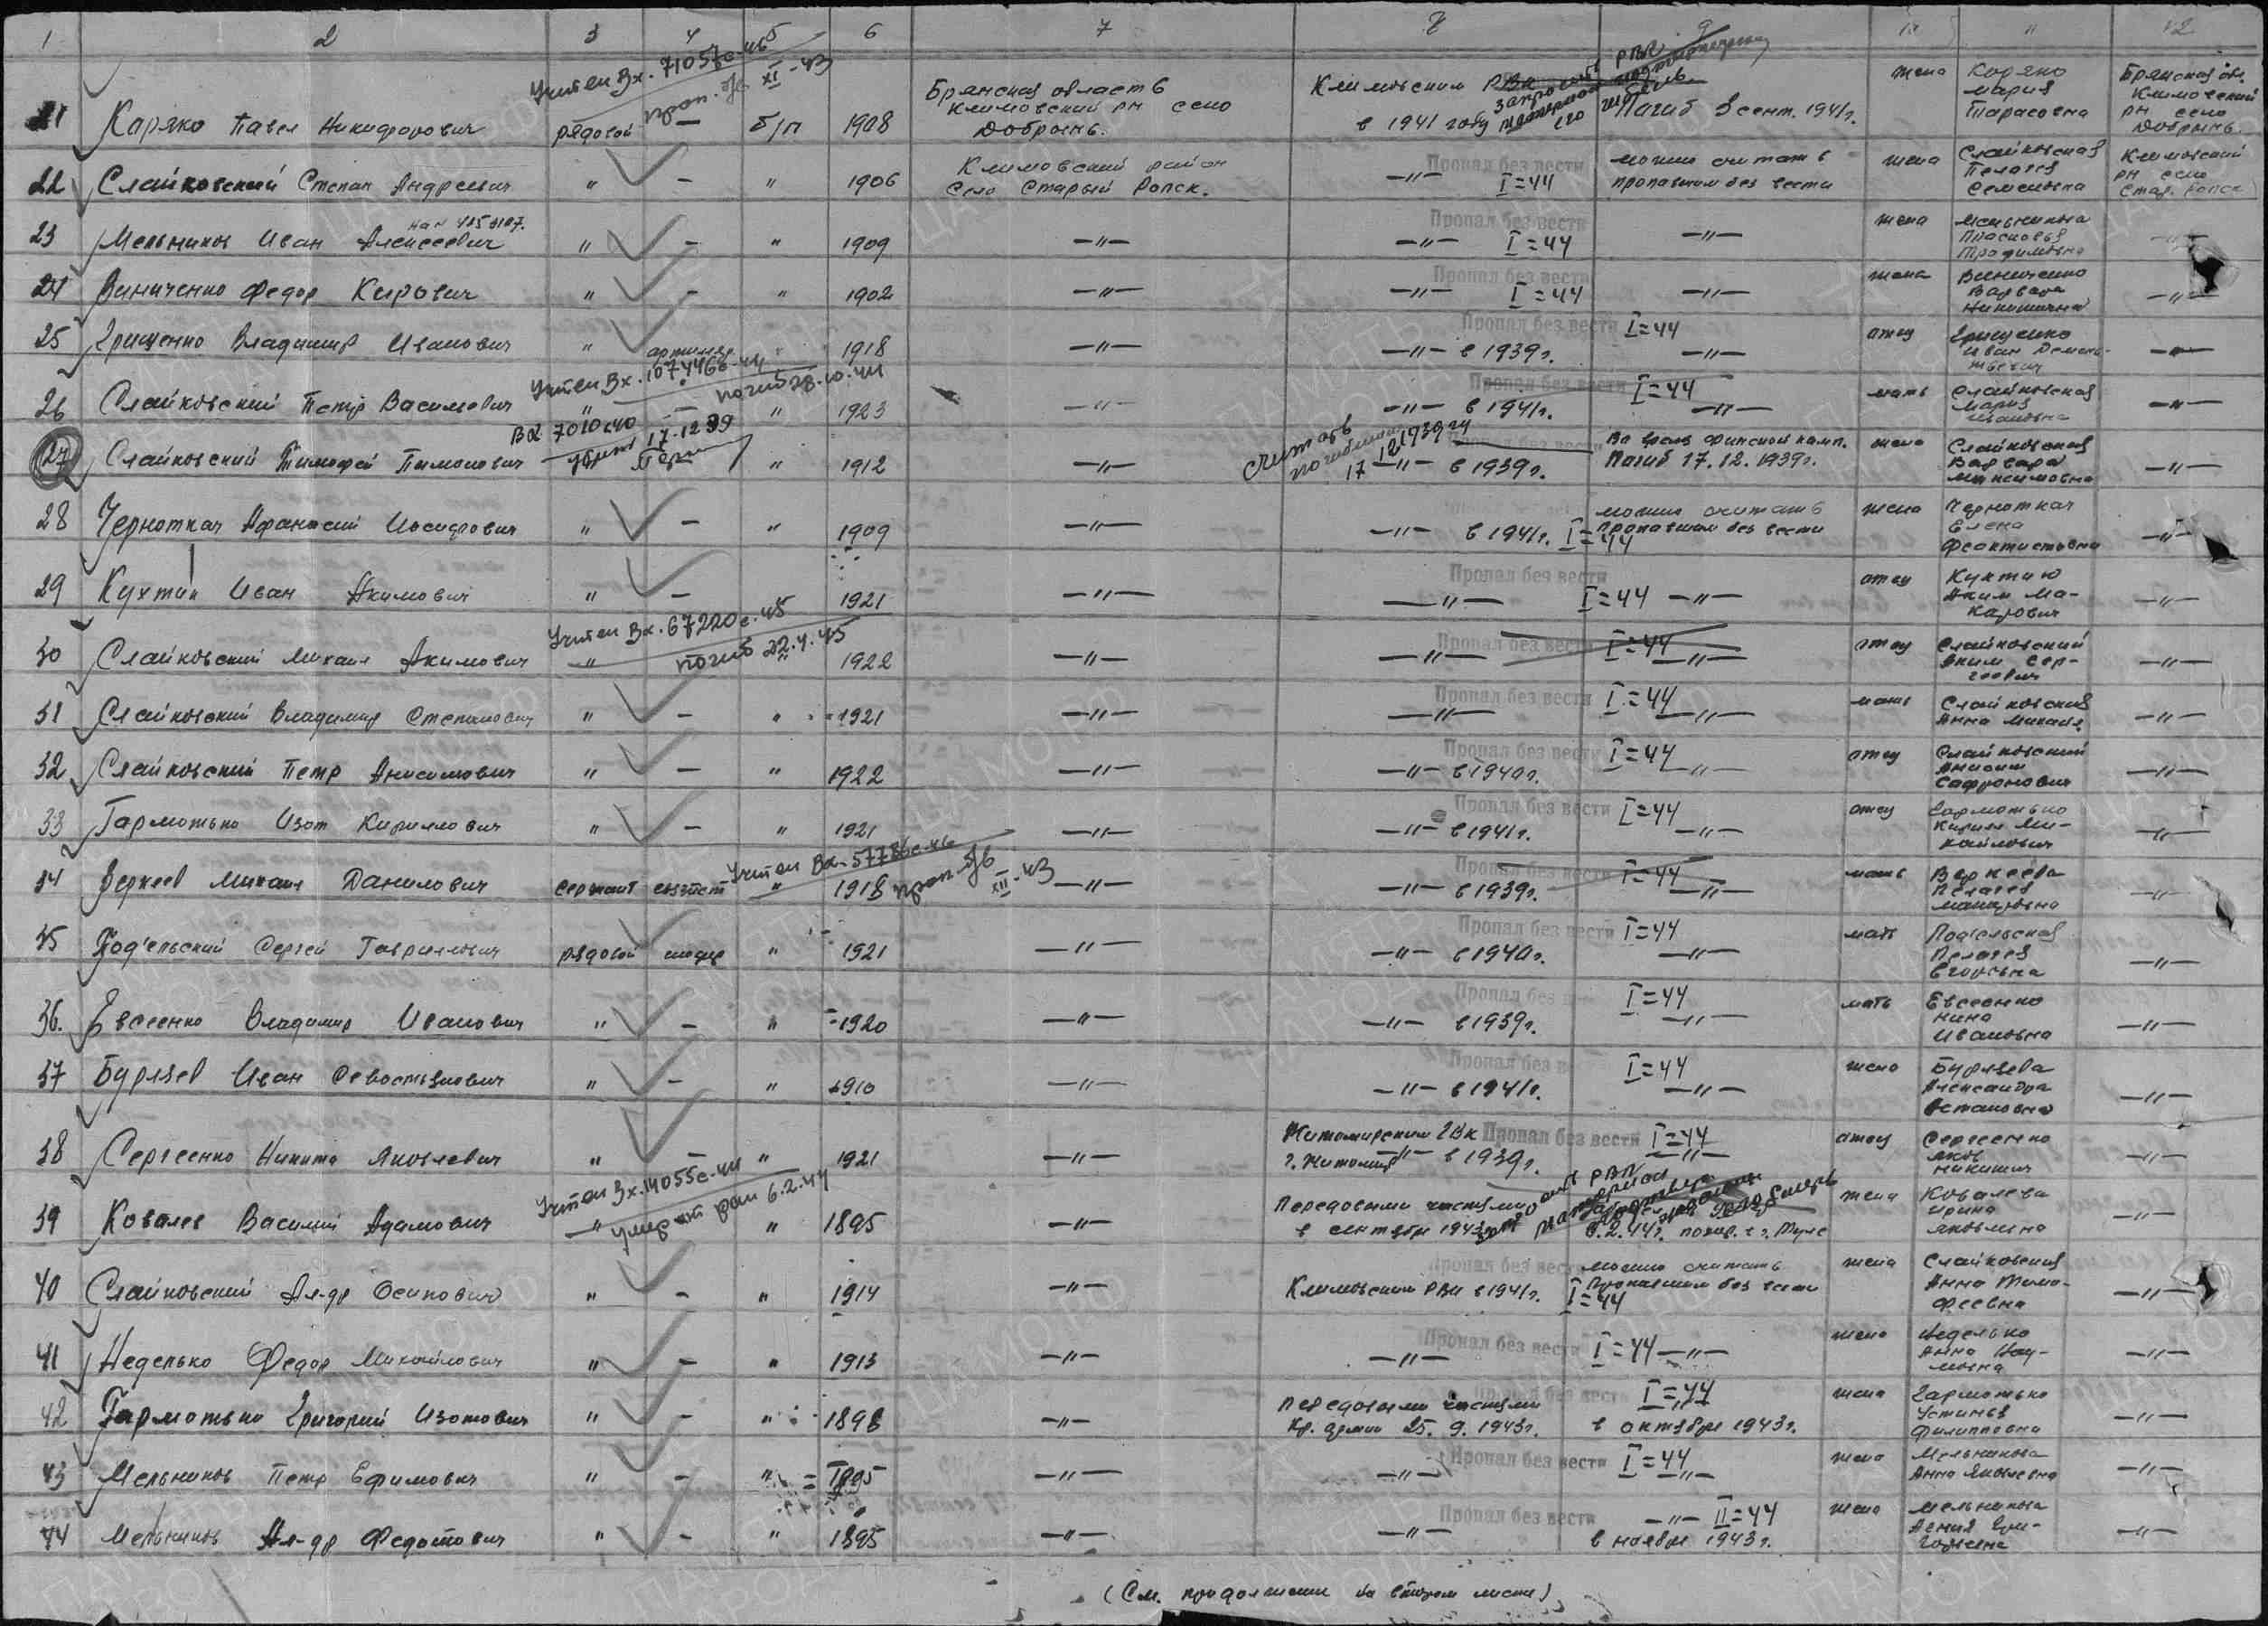 1 2 3 4 5 6 7 8 9 10 11 12
Учтен Вх. 71057с-46
проп. б/в XI-43
21 Каряко Павел Никифорович рядовой — б/п 1908 Брянская область Климовский рн село Добрынь. Климовским РВК в 1941 году Погиб 3 сент. 1941г. жена Каряко Мария Тарасовна Брянская обл. Климовский рн село Добрынь.
22 Слайковский Степан Андреевич " — " 1906 Климовский район Село Старый Ропск. —"— Пропал без вести I=44 можно считать пропавшим без вести жена Слайковская Пелагея Семеновна Климовский рн село Стар. Ропск
23 Мельников Иван Алексеевич " — " 1909 —"— —"— Пропал без вести I=44 —"— жена Мельникова Прасковья Трофимовна —"—
24 Виниченко Федор Кирович " — " 1902 —"— —"— Пропал без вести I=44 —"— жена Виниченко Варвара Никитична —"—
25 Грищенко Владимир Иванович " " 1918 —"— —"— в 1939г. Пропал без вести I=44 —"— отец Грищенко Иван —"—
Учтен Вх. 107446с-44
погиб 28.10.44
26 Слайковский Петр Васильевич " — " 1923 —"— —"— в 1941г. Пропал без вести I=44 —"— мать Слайковская Мария Ивановна —"—
Вх 7010с40
убит 17.12.39
27 Слайковский Тимофей Пимонович " 1912 —"— считать погибшим 17 12 1939 —"— в 1939г. Во время финской камп. Погиб 17.12.1939г. жена Слайковская Варвара Максимовна —"—
28 Черноткач Афанасий Иосифович " — " 1909 —"— —"— в 1941г. I=44 можно считать пропавшим без вести жена Черноткач Елена Феоктистовна —"—
29 Кухтин Иван Акимович " — 1921 —"— —"— Пропал без вести I=44 —"— отец Кухтин Аким Макарович —"—
Учтен Вх. 67220с-45
погиб 22.4.45
30 Слайковский Михаил Акимович " " 1922 —"— —"— Пропал без вести I=44 —"— отец Слайковский Аким Сергеевич —"—
31 Слайковский Владимир Степанович " — " 1921 —"— —"— Пропал без вести I=44 —"— мать Слайковская Анна Михайл. —"—
32 Слайковский Петр Анисимович " — " 1922 —"— —"— в 1940г. Пропал без вести I=44 —"— отец Слайковский Анисим Сафронович —"—
33 Гармотько Изот Кириллович " — " 1921 —"— —"— в 1941г. Пропал без вести I=44 —"— отец Гармотько Кирилл Михайлович —"—
Учтен Вх. 57786с-46
проп. б/в XII-43
34 Веркеев Михаил Данилович сержант связист " 1918 —"— —"— в 1939г. Пропал без вести I=44 —"— мать Веркеева Пелагея —"—
35 Под'ельский Сергей Гаврилович рядовой шофер " 1921 —"— —"— в 1940г. Пропал без вести I=44 —"— мать Под'ельская Пелагея Егоровна —"—
36. Евсеенко Владимир Иванович " — " 1920 —"— —"— в 1939г. Пропал без в I=44 —"— мать Евсеенко Нина Ивановна —"—
37 Бурязев Иван Севостьянович " — " 1910 —"— —"— в 1941г. Пропал без в I=44 —"— жена Бурязева Александра Остаповна —"—
38 Сергеенко Никита Яковлевич " — " 1921 —"— Житомирским ГВК г. Житомир в 1939г. Пропал без вести I=44 —"— отец Сергеенко Яков Никитич —"—
Учтен Вх. 14055с-44
умер от ран 6.2.44
39 Ковалев Василий Адамович " " 1895 —"— Передовыми частями в сентябре 1943 6.2.44г. похор. в г. Туле жена Ковалева Ирина Яковлевна —"—
40 Слайковский Ал-др Осипович " — " 1914 —"— Климовским РВК в 1941г. Пропал без вести I=44 можно считать пропавшим без вести жена Слайковская Анна Тимофеевна —"—
41 Неделько Федор Михайлович " — " 1913 —"— —"— Пропал без вести I=44 —"— жена Неделько Анна Наумовна —"—
42 Гармотько Григорий Изотович " — " 1898 —"— Передовыми частями Кр. армии 25.9.1943г. Пропал без вести I=44 —"— в октябре 1943г. жена Гармотько Устинья Филипповна —"—
43 Мельников Петр Ефимович " — " 1895 —"— —"— Пропал без вести I=44 —"— жена Мельникова Анна Яковлевна —"—
44 Мельников Ал-др Федотович " — " 1895 —"— —"— Пропал без вести —"— II=44 в ноябре 1943г. жена Мельникова —"—
(См. продолжение на втором листе)